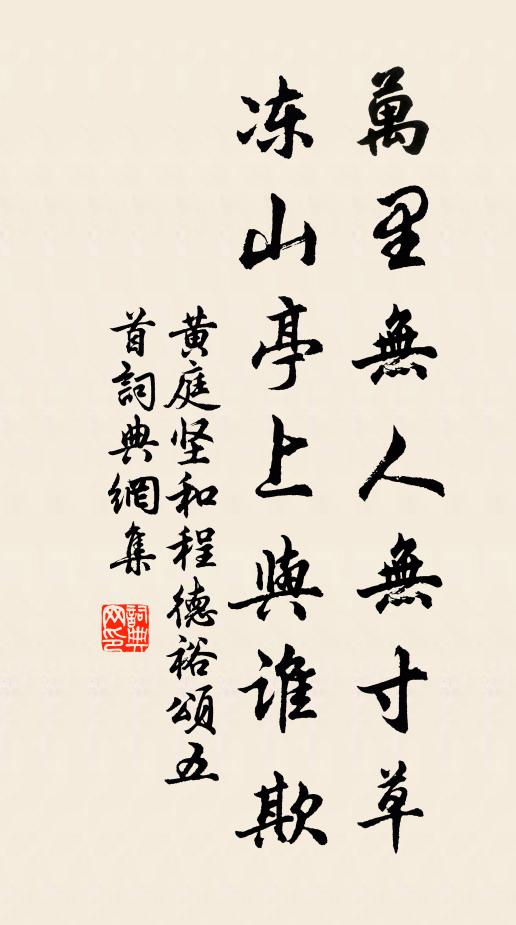 萬里無人無寸草
冻山亭上與谁欺
黄庭坚和程德裕頌五
首詞典網集
詞典網印